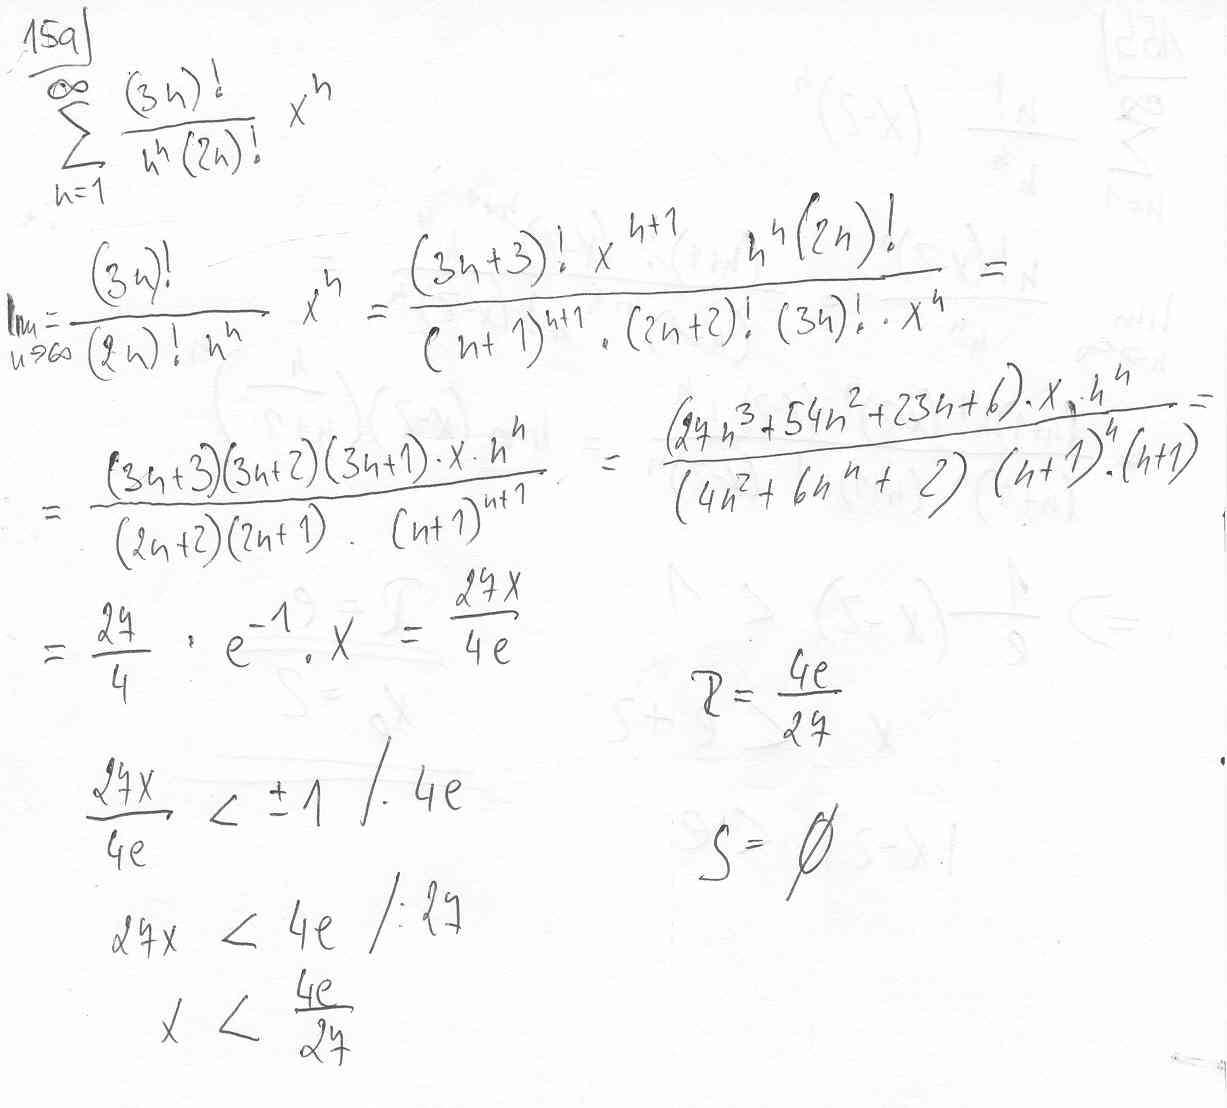 15a)
∞
∑ (3n)! / n^n (2n)! x^n
n=1
lim n→∞ = (3n)! / (2n)! n^n x^n = (3n+3)! x^(n+1) n^n (2n)! / (n+1)^(n+1) . (2n+2)! (3n)! · x^n =
= (3n+3)(3n+2)(3n+1) · x · n^n / (2n+2)(2n+1) . (n+1)^(n+1) = (27n^3+54n^2+23n+6) · x · n^n / (4n^2+6n^n+2) (n+1)^n · (n+1) =
= 27/4 · e^-1 . x = 27x/4e
R = 4e/27
27x/4e < ±1 /. 4e
S = ∅
27x < 4e /: 27
x < 4e/27